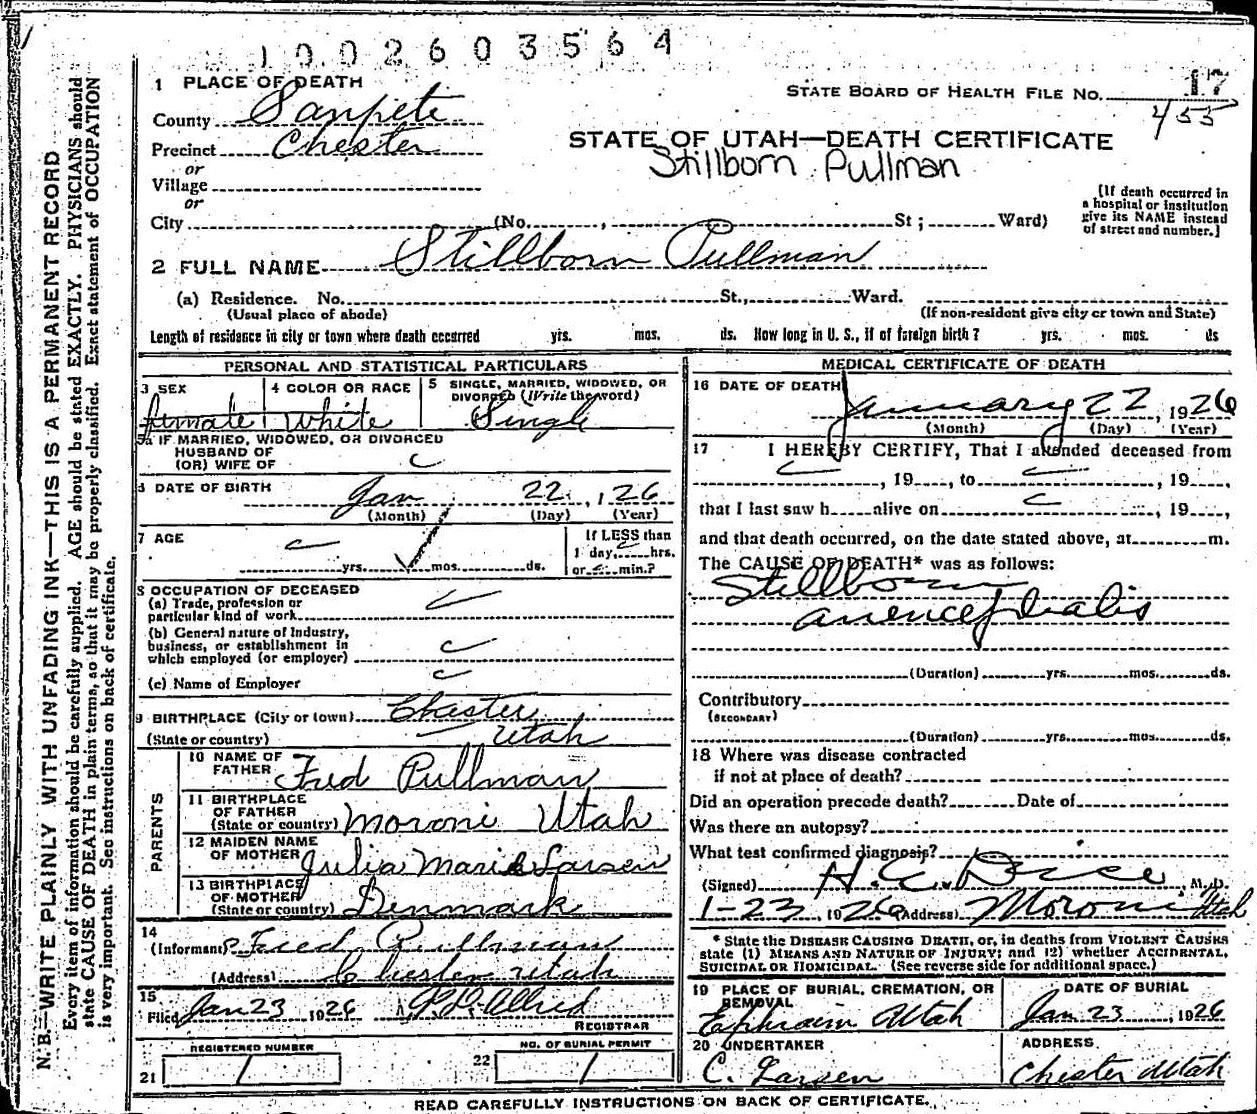 1002603564
1 PLACE OF DEATH
STATE BOARD OF HEALTH FILE NO. 17
455
County Sanpete
STATE OF UTAH—DEATH CERTIFICATE
Precinct Chester
Stillborn Pullman
or
Village
or
[If death occurred in
a hospital or institution
give its NAME instead
of street and number.]
City (No. , St ; Ward)
2 FULL NAME Stillborn Pullman
(a) Residence. No. St., Ward.
(Usual place of abode) (If non-resident give city or town and State)
Length of residence in city or town where death occurred yrs. mos. ds. How long in U. S., if of foreign birth? yrs. mos. ds
PERSONAL AND STATISTICAL PARTICULARS
3 SEX
female
4 COLOR OR RACE
White
5 SINGLE, MARRIED, WIDOWED, OR
DIVORCED (Write the word)
Single
5a IF MARRIED, WIDOWED, OR DIVORCED
HUSBAND OF
(OR) WIFE OF
6 DATE OF BIRTH Jan 22, 1926
(Month) (Day) (Year)
7 AGE
yrs. mos. ds.
If LESS than
1 day, hrs.
or min.?
8 OCCUPATION OF DECEASED
(a) Trade, profession or
particular kind of work
(b) General nature of Industry,
business, or establishment in
which employed (or employer)
(c) Name of Employer
9 BIRTHPLACE (City or town) Chester
(State or country) Utah
PARENTS
10 NAME OF
FATHER Fred Pullman
11 BIRTHPLACE
OF FATHER
(State or country) Moroni Utah
12 MAIDEN NAME
OF MOTHER Julia Marie Larsen
13 BIRTHPLACE
OF MOTHER
(State or country) Denmark
14
(Informant) Fred Pullman
(Address) Chester Utah
15
Filed Jan 23 1926 P.P. Allred
REGISTRAR
REGISTERED NUMBER
21 1
NO. OF BURIAL PERMIT
22 1
MEDICAL CERTIFICATE OF DEATH
16 DATE OF DEATH
January 22, 1926
(Month) (Day) (Year)
17 I HEREBY CERTIFY, That I attended deceased from
, 19 , to , 19 ,
that I last saw h alive on , 19 ,
and that death occurred, on the date stated above, at m.
The CAUSE OF DEATH* was as follows:
Stillborn
anencephalis
(Duration) yrs. mos. ds.
Contributory
(SECONDARY)
(Duration) yrs. mos. ds.
18 Where was disease contracted
if not at place of death?
Did an operation precede death? Date of
Was there an autopsy?
What test confirmed diagnosis?
(Signed) H. C. Dice, M. D.
1-23, 1926 (Address) Moroni Utah
* State the DISEASE CAUSING DEATH, or, in deaths from VIOLENT CAUSES
state (1) MEANS AND NATURE OF INJURY; and (2) whether ACCIDENTAL,
SUICIDAL OR HOMICIDAL. (See reverse side for additional space.)
19 PLACE OF BURIAL, CREMATION, OR
REMOVAL
Ephraim Utah
DATE OF BURIAL
Jan 23, 1926
20 UNDERTAKER
C. Larsen
ADDRESS
Chester Utah
READ CAREFULLY INSTRUCTIONS ON BACK OF CERTIFICATE.
N. B.—WRITE PLAINLY WITH UNFADING INK—THIS IS A PERMANENT RECORD
Every item of information should be carefully supplied. AGE should be stated EXACTLY. PHYSICIANS should
state CAUSE OF DEATH in plain terms, so that it may be properly classified. Exact statement of OCCUPATION
is very important. See instructions on back of certificate.